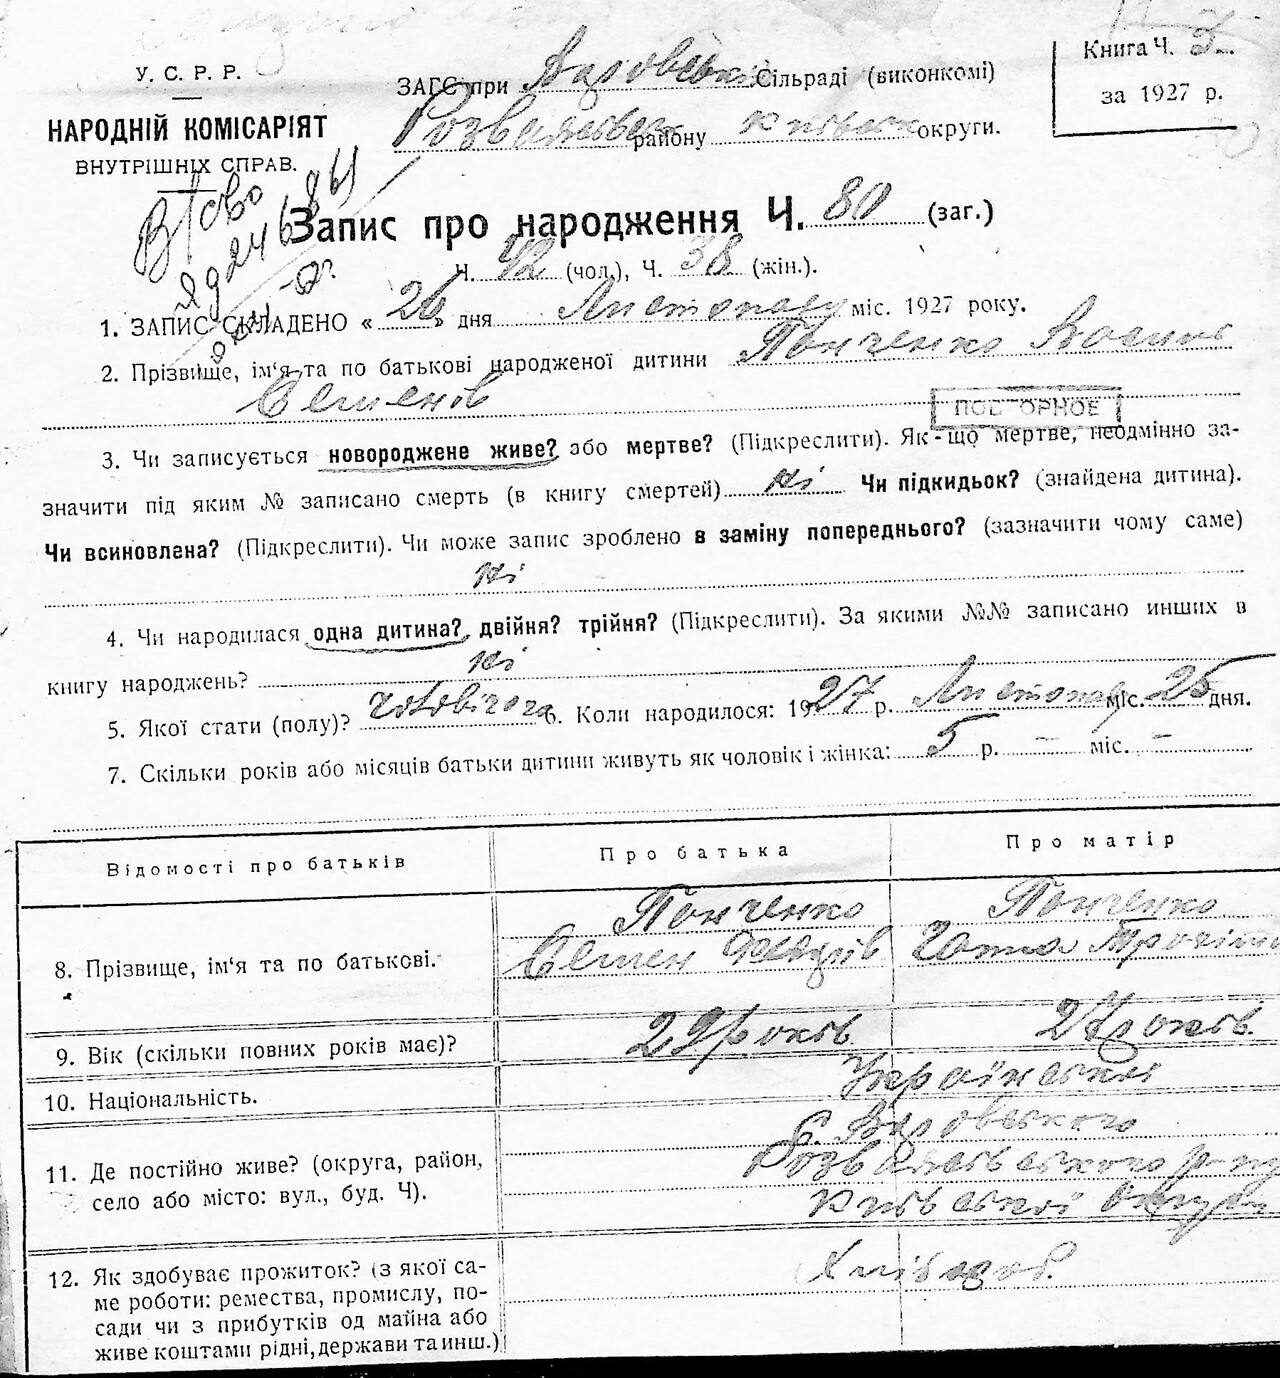 У. С. Р. Р.
НАРОДНІЙ КОМІСАРІЯТ
ВНУТРІШНІХ СПРАВ.
ЗАГС при Сільраді (виконкомі)
району округи.
Книга Ч. 3
за 1927 р.
Запис про народження Ч. 80 (заг.)
Ч. 42 (чол.), Ч. 38 (жін.).
1. ЗАПИС СКЛАДЕНО « 26 » дня Листопаду міс. 1927 року.
2. Прізвище, ім'я та по батькові народженої дитини Панченко Василь
Семенів
ПОВТОРНОЕ
3. Чи записується новороджене живе? або мертве? (Підкреслити). Як-що мертве, неодмінно за-
значити під яким № записано смерть (в книгу смертей) ні Чи підкидьок? (знайдена дитина).
Чи всиновлена? (Підкреслити). Чи може запис зроблено в заміну попереднього? (зазначити чому саме)
ні
4. Чи народилася одна дитина? двійня? трійня? (Підкреслити). За якими №№ записано инших в
книгу народжень? ні
5. Якої стати (полу)? 6. Коли народилося: 1927 р. Листопаду міс. 25 дня.
7. Скільки років або місяців батьки дитини живуть як чоловік і жінка: 5 р. — міс. —
Відомості про батьків Про батька Про матір
8. Прізвище, ім'я та по батькові. Панченко Панченко
Семен
9. Вік (скільки повних років має)? 29 років 27 років
10. Національність. Українська
11. Де постійно живе? (округа, район,
село або місто: вул., буд. Ч).
Київської Округи
12. Як здобуває прожиток? (з якої са-
ме роботи: ремества, промислу, по-
сади чи з прибутків од майна або
живе коштами рідні, держави та инш.) Хлібороб.